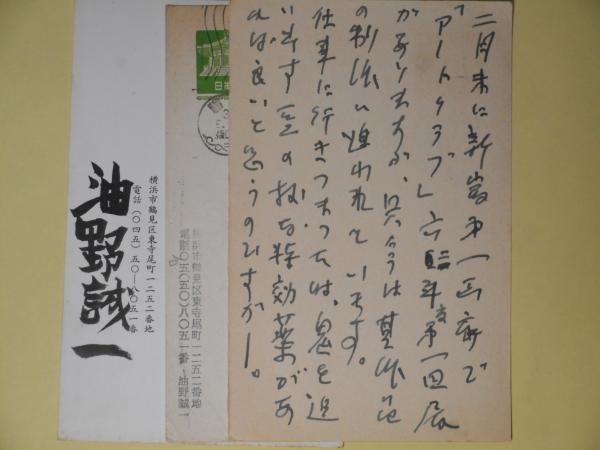 二月末に新宿第一画廊で
「アートクラブ」六四年度第一回展
がありますが、只今は其作品
の制作に追われています。
仕事に行きつまった時は、鬼を追
い出す豆の様な特効薬があ
れば良いと思うのですが―。
横浜市鶴見区東寺尾町一二五二番地
電話〇五(五〇)八〇五一番・油野誠一
横浜市鶴見区東寺尾町一二五二番地
電話(〇四五)五〇―八〇五一番
油野誠一